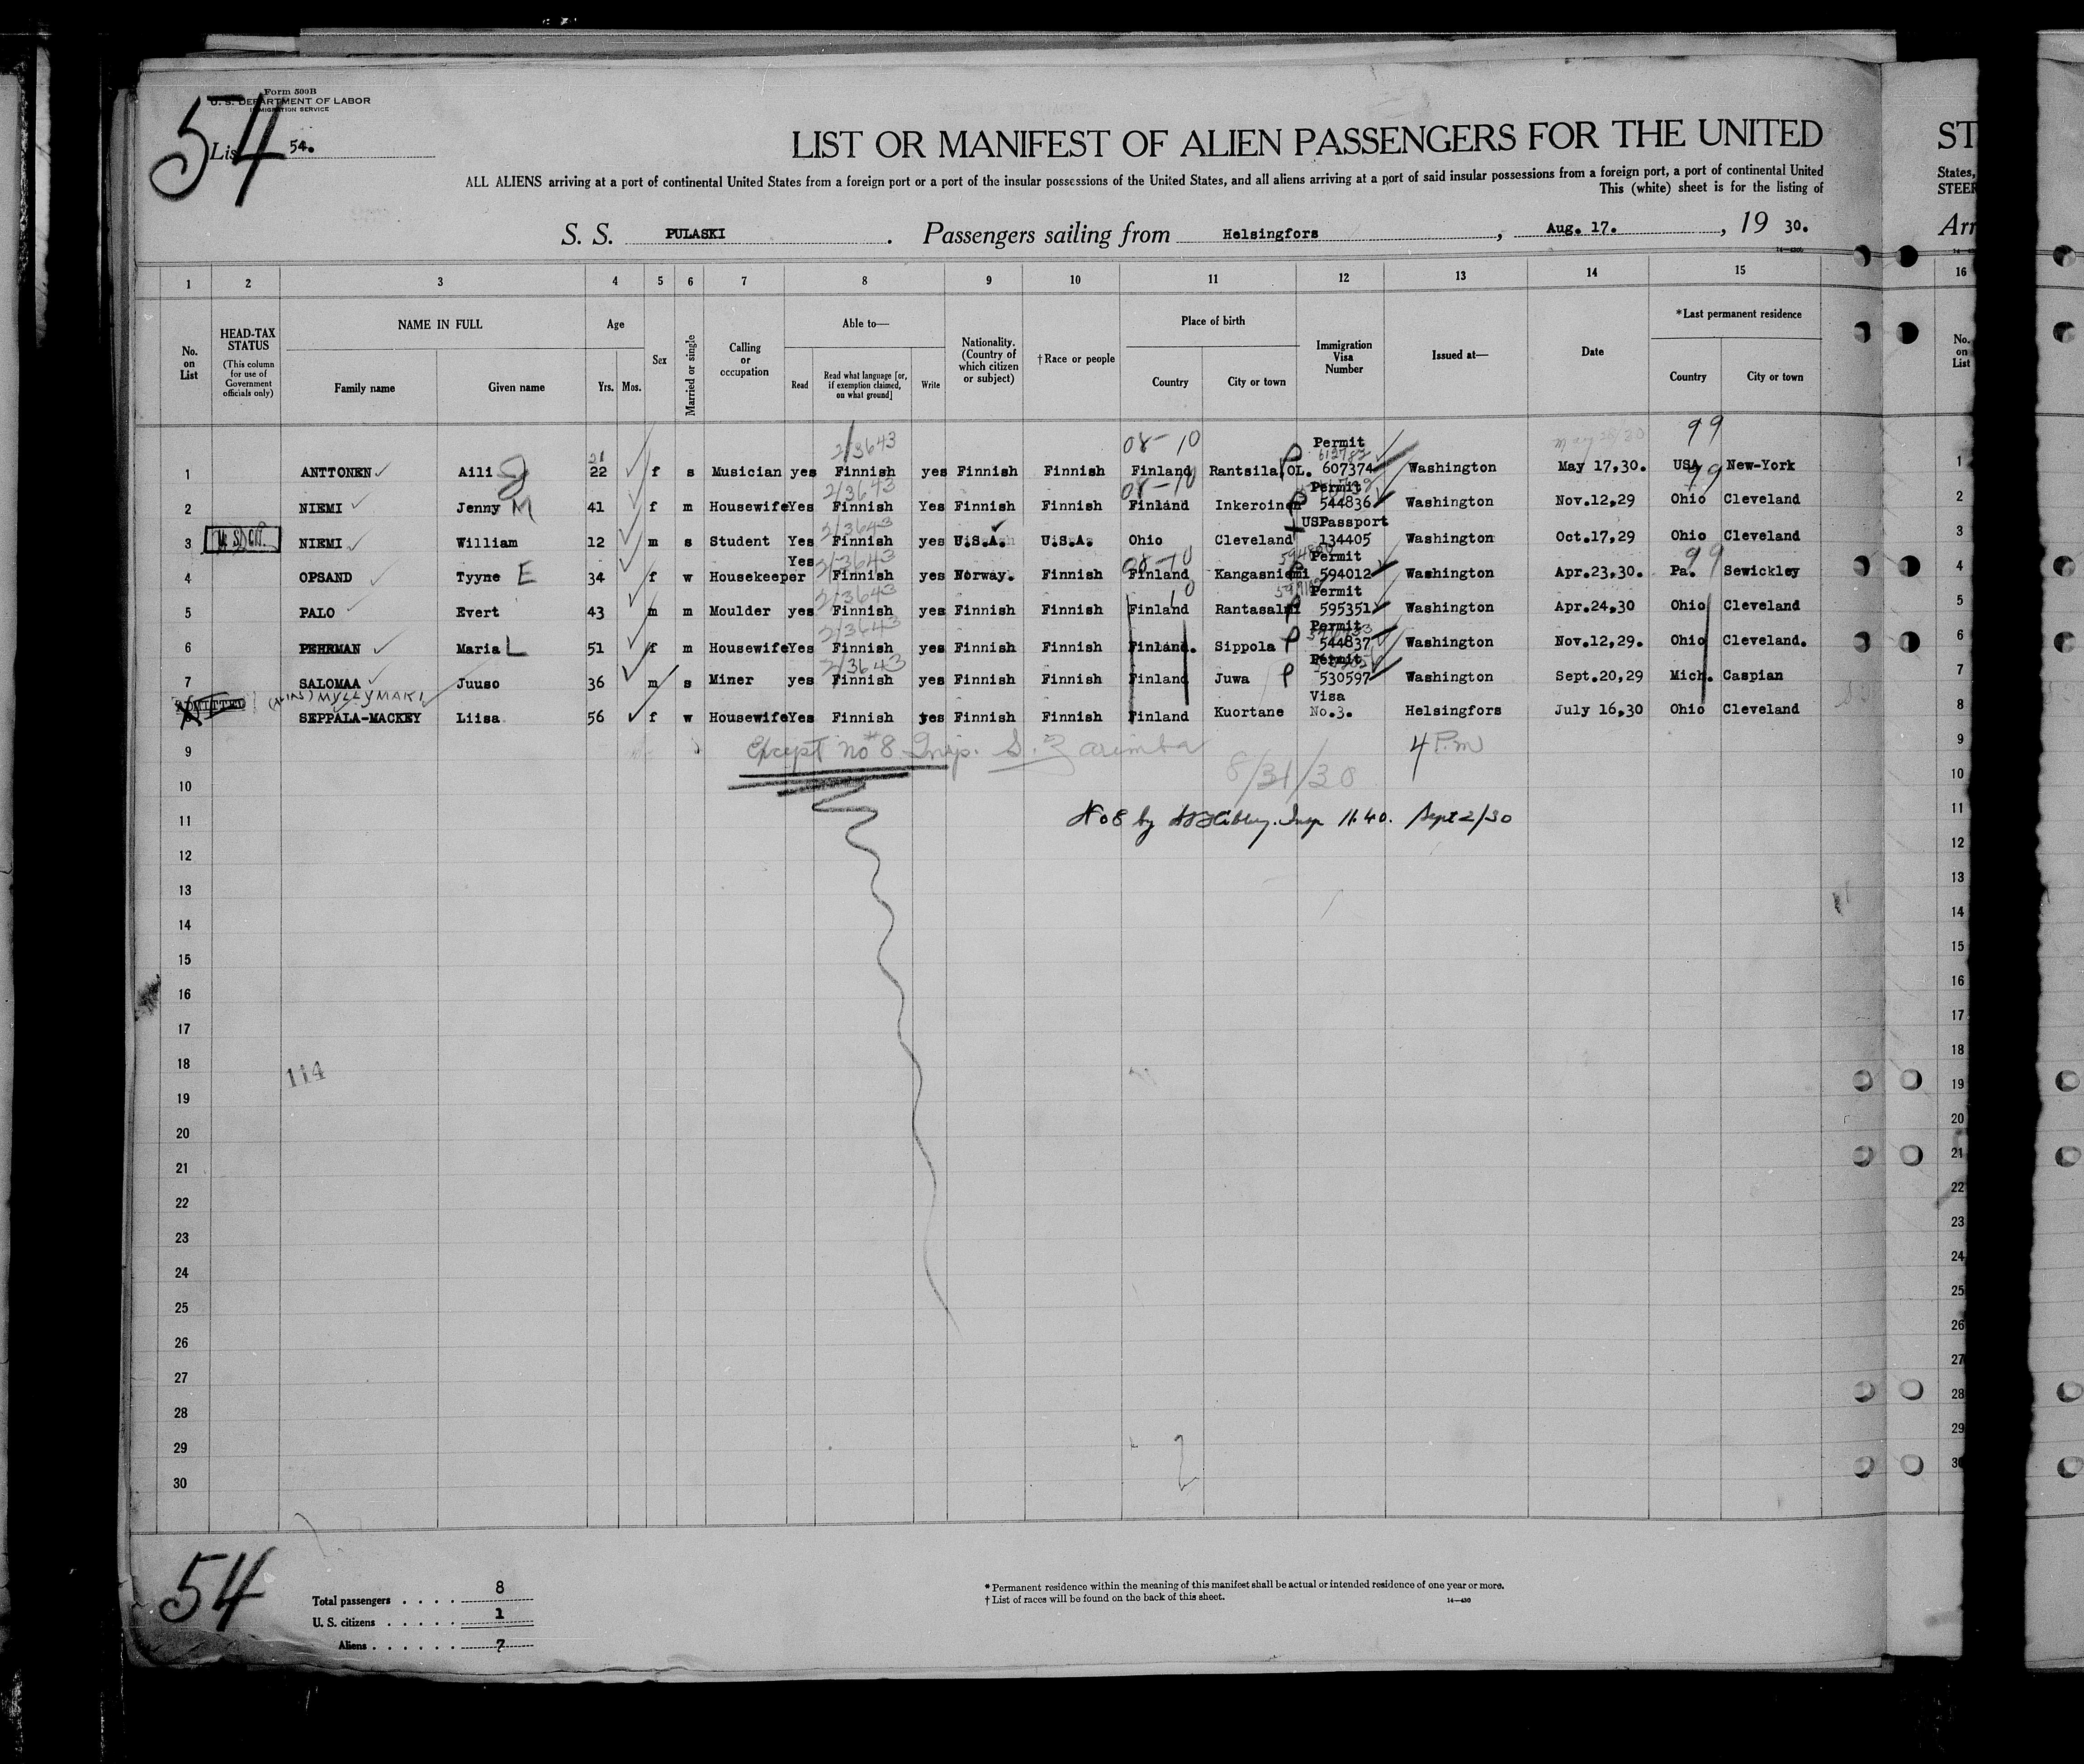 Form 500B
U. S. DEPARTMENT OF LABOR
IMMIGRATION SERVICE
54
List 54.
LIST OR MANIFEST OF ALIEN PASSENGERS FOR THE UNITED
ST
ALL ALIENS arriving at a port of continental United States from a foreign port or a port of the insular possessions of the United States, and all aliens arriving at a port of said insular possessions from a foreign port, a port of continental United
States,
This (white) sheet is for the listing of
STEER
S. S. PULASKI . Passengers sailing from Helsingfors , Aug. 17. , 19 30.
Arr
1 2 3 4 5 6 7 8 9 10 11 12 13 14 15 16
No. on List
HEAD-TAX STATUS
(This column for use of Government officials only)
NAME IN FULL
Family name Given name
Age
Yrs. Mos.
Sex
Married or single
Calling or occupation
Able to—
Read Read what language [or, if exemption claimed, on what ground] Write
Nationality. (Country of which citizen or subject)
†Race or people
Place of birth
Country City or town
Immigration Visa Number
Issued at—
Date
*Last permanent residence
Country City or town
No. on List
2/3643 08-10 Permit 99
21 613782
1 ANTTONEN Aili J 22 f s Musician yes Finnish yes Finnish Finnish Finland Rantsila OL. 607374 Washington May 17,30. USA New-York 1
2/3643 08-10 Permit 99
2 NIEMI Jenny M 41 f m Housewife Yes Finnish Yes Finnish Finnish Finland Inkeroinen 544836 Washington Nov.12,29 Ohio Cleveland 2
2/3643 USPassport
3 U.S. Cit. NIEMI William 12 m s Student Yes Finnish yes U.S.A. U.S.A. Ohio Cleveland 134405 Washington Oct.17,29 Ohio Cleveland 3
Yes 2/3643 08-10 Permit 99
4 OPSAND Tyyne E 34 f w Housekeeper Finnish yes Norway. Finnish Finland Kangasniemi 594012 Washington Apr.23,30. Pa. Sewickley 4
2/3643 10 Permit
5 PALO Evert 43 m m Moulder yes Finnish yes Finnish Finnish Finland Rantasalmi 595351 Washington Apr.24,30 Ohio Cleveland 5
2/3643 Permit
6 PEHRMAN Maria L 51 f m Housewife Yes Finnish yes Finnish Finnish Finland. Sippola 544837 Washington Nov.12,29. Ohio Cleveland. 6
2/3643 Permit
7 SALOMAA Juuso 36 m s Miner yes Finnish yes Finnish Finnish Finland Juwa 530597 Washington Sept.20,29 Mich. Caspian 7
ADMITTED (ALIAS) MYLLYMAKI Visa
SEPPALA-MACKEY Liisa 56 f w Housewife Yes Finnish yes Finnish Finnish Finland Kuortane No.3. Helsingfors July 16,30 Ohio Cleveland 8
9 Except no #8 Insp. S. Zarimba 4 P.m 9
10 8/31/30 10
11 No 8 by Insp 11.40. Sept 2/30 11
12 12
13 13
14 14
15 15
16 16
17 17
18 114 18
19 19
20 20
21 21
22 22
23 23
24 24
25 25
26 26
27 27
28 28
29 29
30 30
54
Total passengers . . . . 8
U. S. citizens . . . . . 1
Aliens . . . . . . 7
* Permanent residence within the meaning of this manifest shall be actual or intended residence of one year or more.
† List of races will be found on the back of this sheet. 14—430